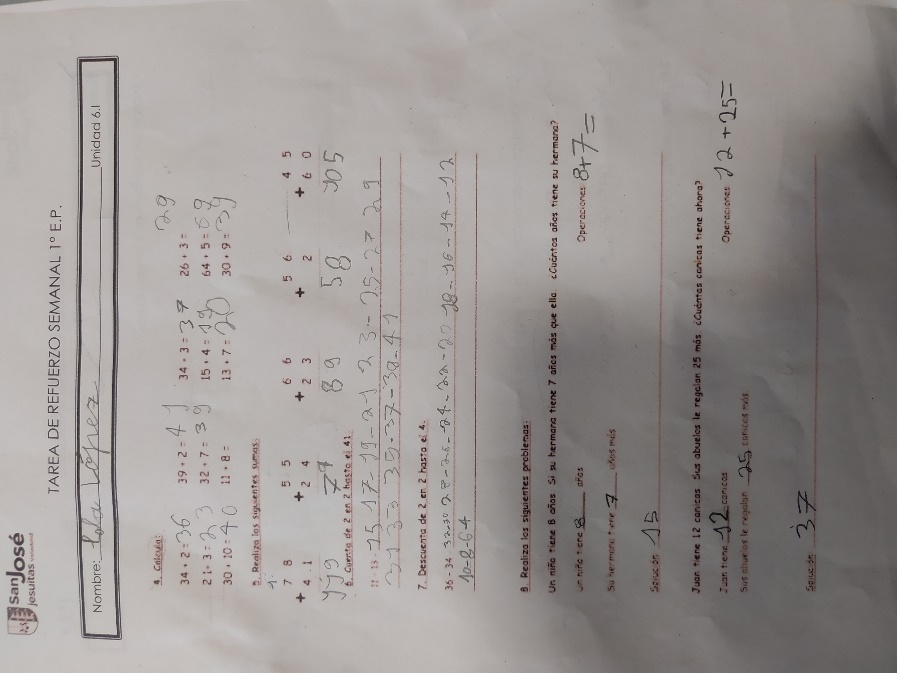 SanJosé
jesuitas
TAREA DE REFUERZO SEMANAL 1º E.P.
Nombre: Lola López Unidad 6.1
4. Calcula:
34 + 2 = 36 39 + 2 = 41 34 + 3 = 37 26 + 3 = 29
21 + 3 = 23 32 + 7 = 39 15 + 4 = 19 64 + 5 = 69
30 + 10 = 40 11 + 8 = 13 + 7 = 20 30 + 9 = 39
5. Realiza las siguientes sumas:
1
7 8 5 5 6 6 5 6 4 5
+ 4 1 + 2 4 + 2 3 + 2 + 6 0
119 79 89 58 105
6. Cuenta de 2 en 2 hasta el 41.
11 - 13 - 15 17 - 19 - 21 2 3 - 25 - 27 29
31 33 35 - 37 - 39 - 41
7. Descuenta de 2 en 2 hasta el 4.
36 - 34 32 - 30 28 - 26 - 24 - 22 - 20 18 - 16 - 14 - 12
10 - 8 - 6 4
8. Realiza los siguientes problemas:
Un niño tiene 8 años. Si su hermana tiene 7 años más que ella. ¿Cuántos años tiene su hermana?
Un niño tiene 8 años Operaciones 8+7=
Su hermana tiene 7 años más
Solución 15
Juan tiene 12 canicas. Sus abuelos le regalan 25 más. ¿Cuántas canicas tiene ahora?
Juan tiene 12 canicas Operaciones 12+25=
Sus abuelos le regalan 25 canicas más
Solución 37